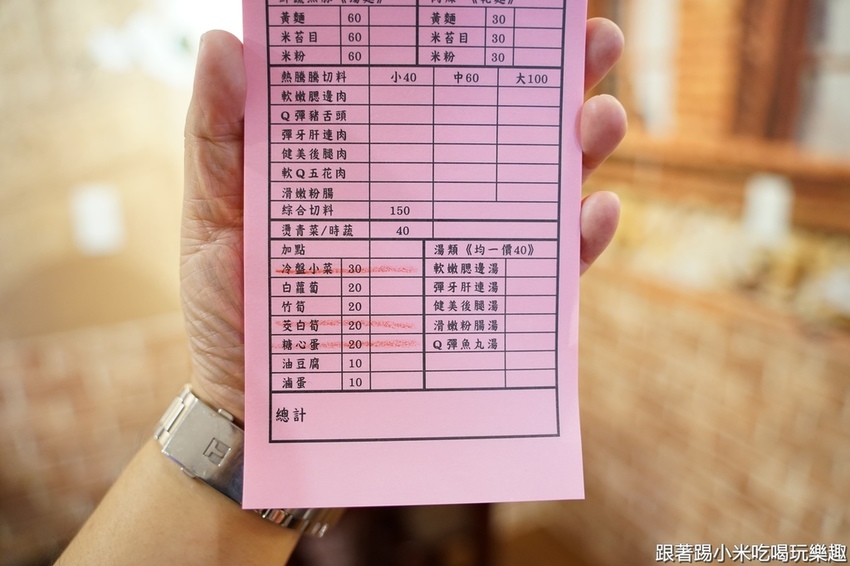 黃麵 60 黃麵 30
米苔目 60 米苔目 30
米粉 60 米粉 30
熱騰騰切料 小40 中60 大100
軟嫩腮邊肉
Q彈豬舌頭
彈牙肝連肉
健美後腿肉
軟Q五花肉
滑嫩粉腸
綜合切料 150
燙青菜/時蔬 40
加點 湯類《均一價40》
冷盤小菜 30 軟嫩腮邊湯
白蘿蔔 20 彈牙肝連湯
竹筍 20 健美後腿湯
茭白筍 20 滑嫩粉腸湯
糖心蛋 20 Q彈魚丸湯
油豆腐 10
滷蛋 10
總計
跟著踢小米吃喝玩樂趣